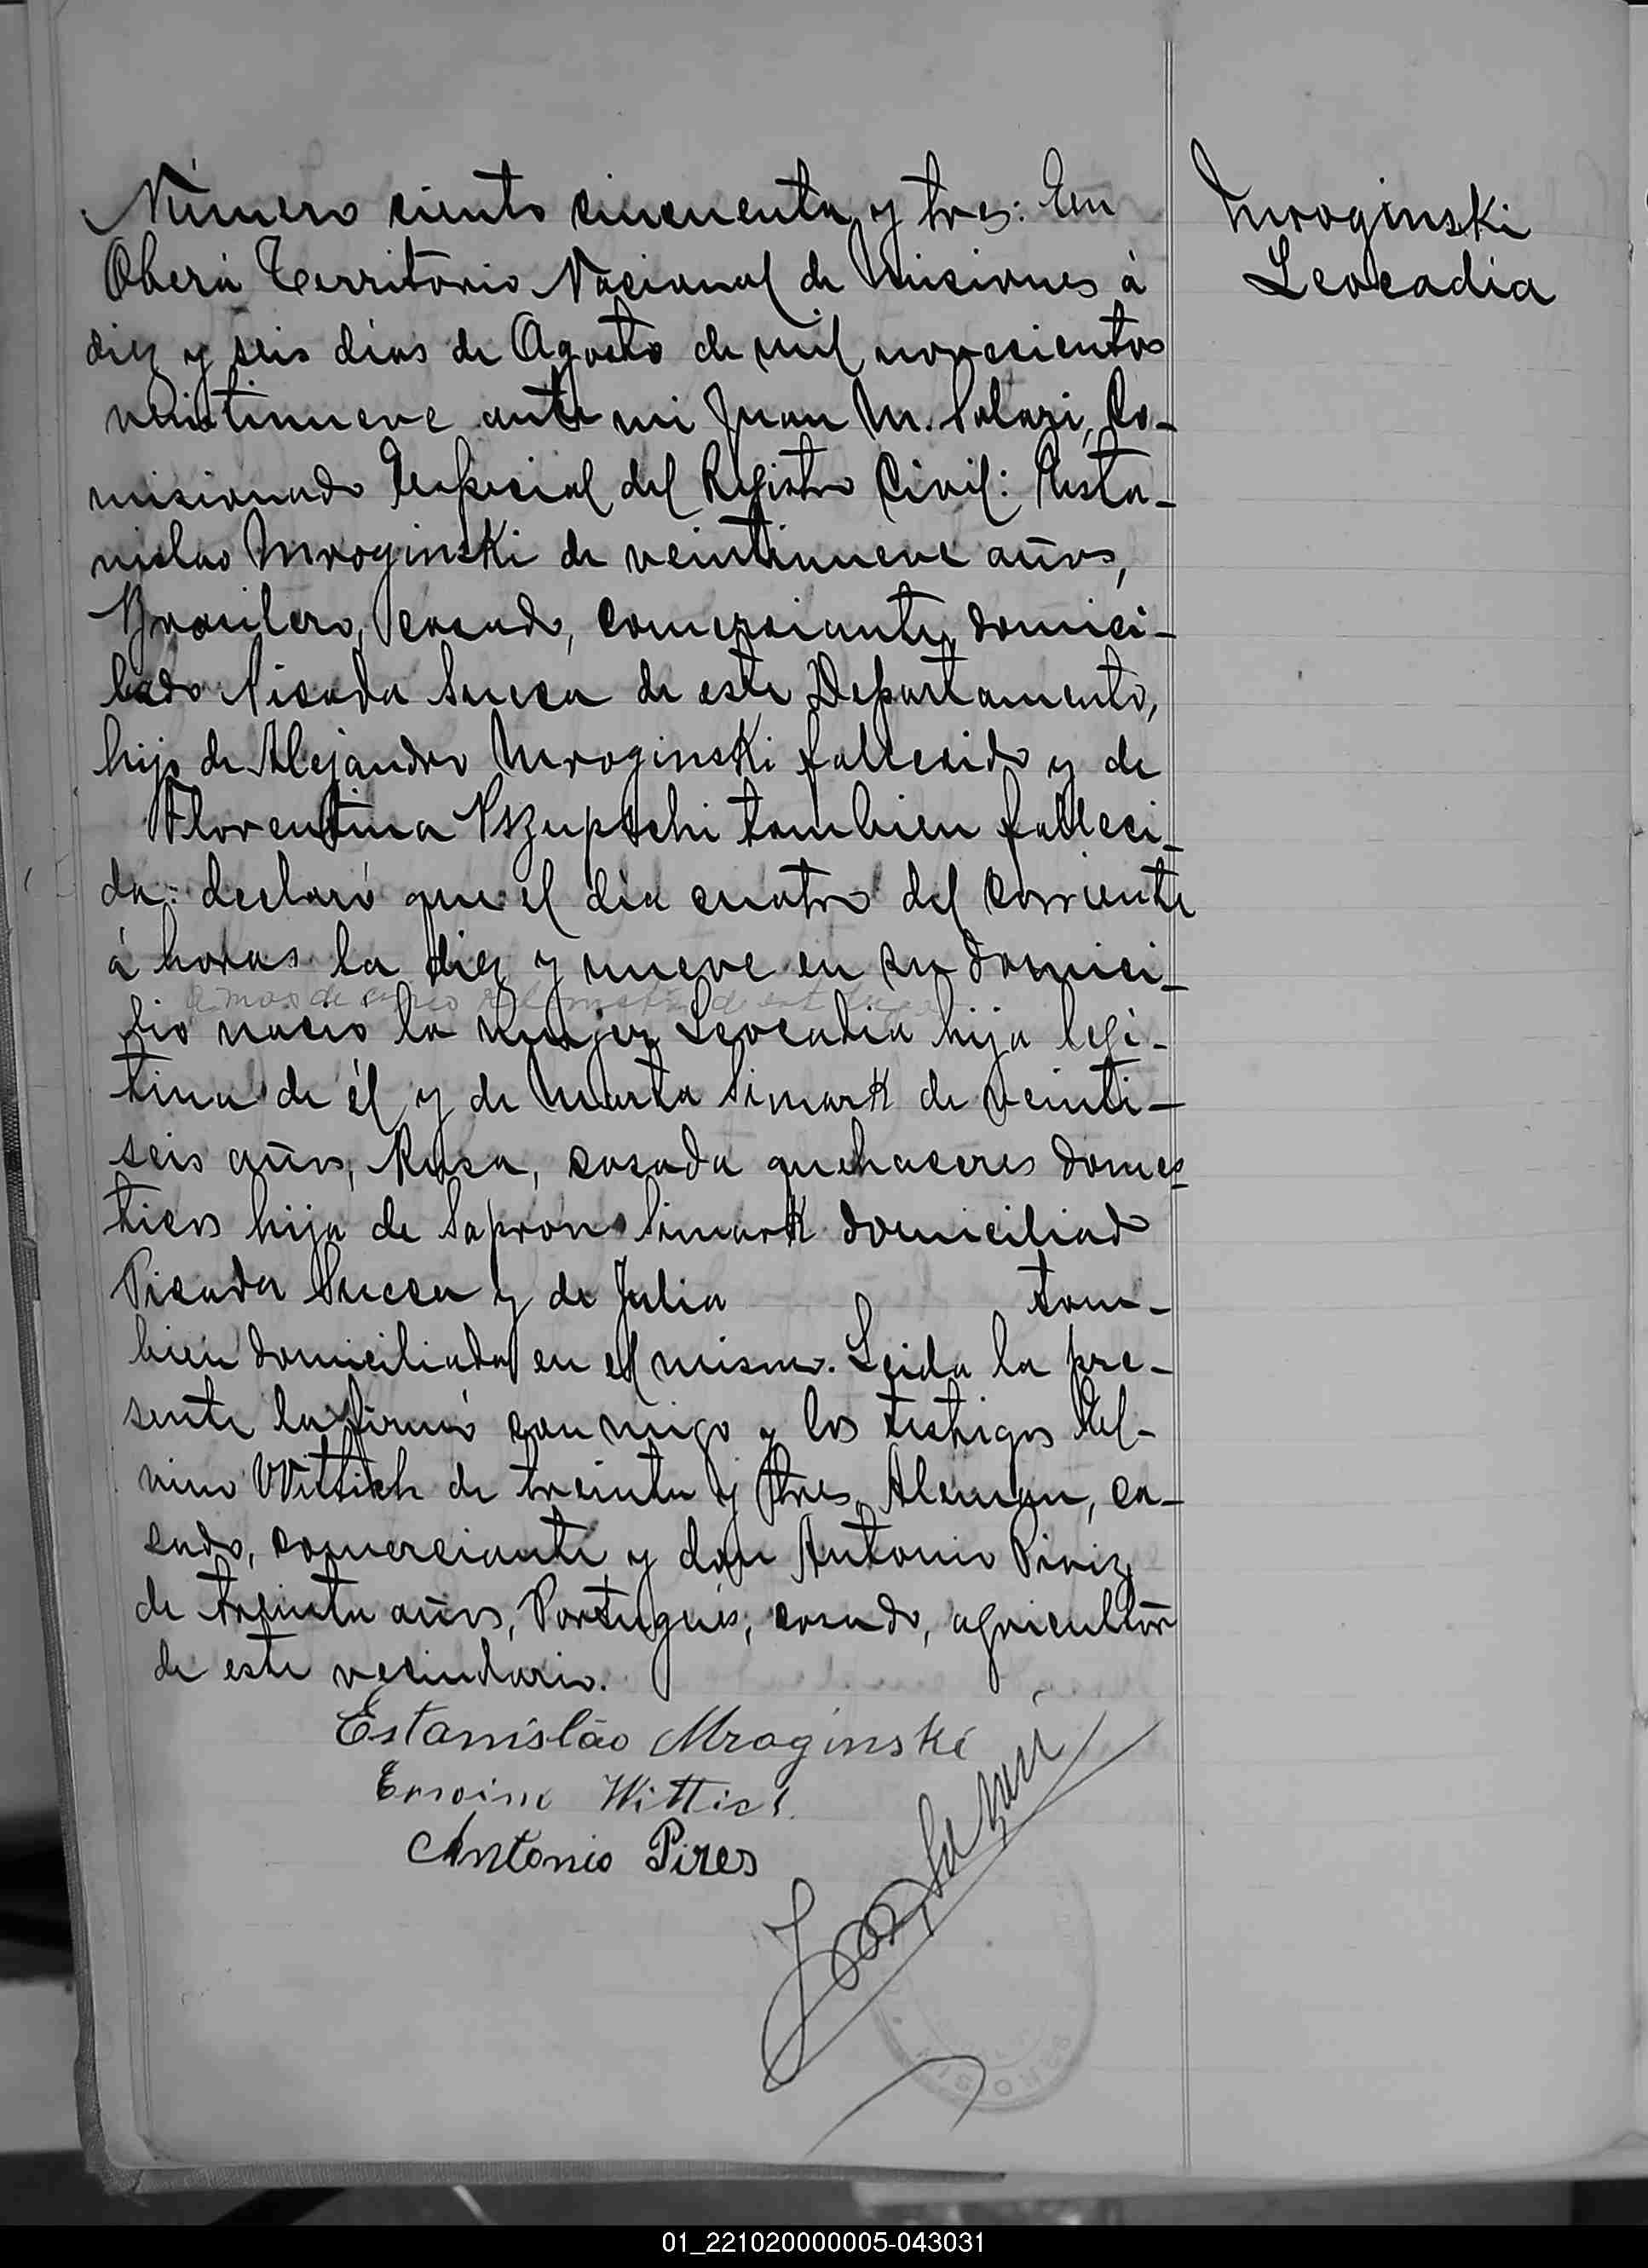 Número ciento cincuenta y tres: En
Oberá Territorio Nacional de Misiones á
diez y seis dias de Agosto de mil novecientos
veintinueve ante mi Juan M. Solari, Co-
misionado Especial del Registro Civil: Esta-
nislao Mroginski de veintinueve años,
Brasilero, casado, comerciante, domici-
liado Picada Sueca de este Departamento,
hijo de Alejandro Mroginski fallecido y de
Florentina tambien falleci-
da: declaró que el dia cuatro del corriente
á horas la diez y nueve en su domici-
lio nació la mujer Leocadia hija legi-
tima de él y de Marta Simark de veinti-
seis años, Rusa, casada quehaceres domes
ticos hija de Sapron Simark domiciliado
Picada Sueca y de Julia tam-
bien domiciliada en el mismo. Leida la pre-
sente la firmó con migo y los testigos
Wittich de treinta y tres, Aleman, ca-
sado, comerciante y don Antonio Piriz
de treinta años, Portugués, casado, agricultor
de este vecindario.
Estanislão Mroginski
Wittich
Antonio Pires
Mroginski
Leocadia
01_221020000005-043031